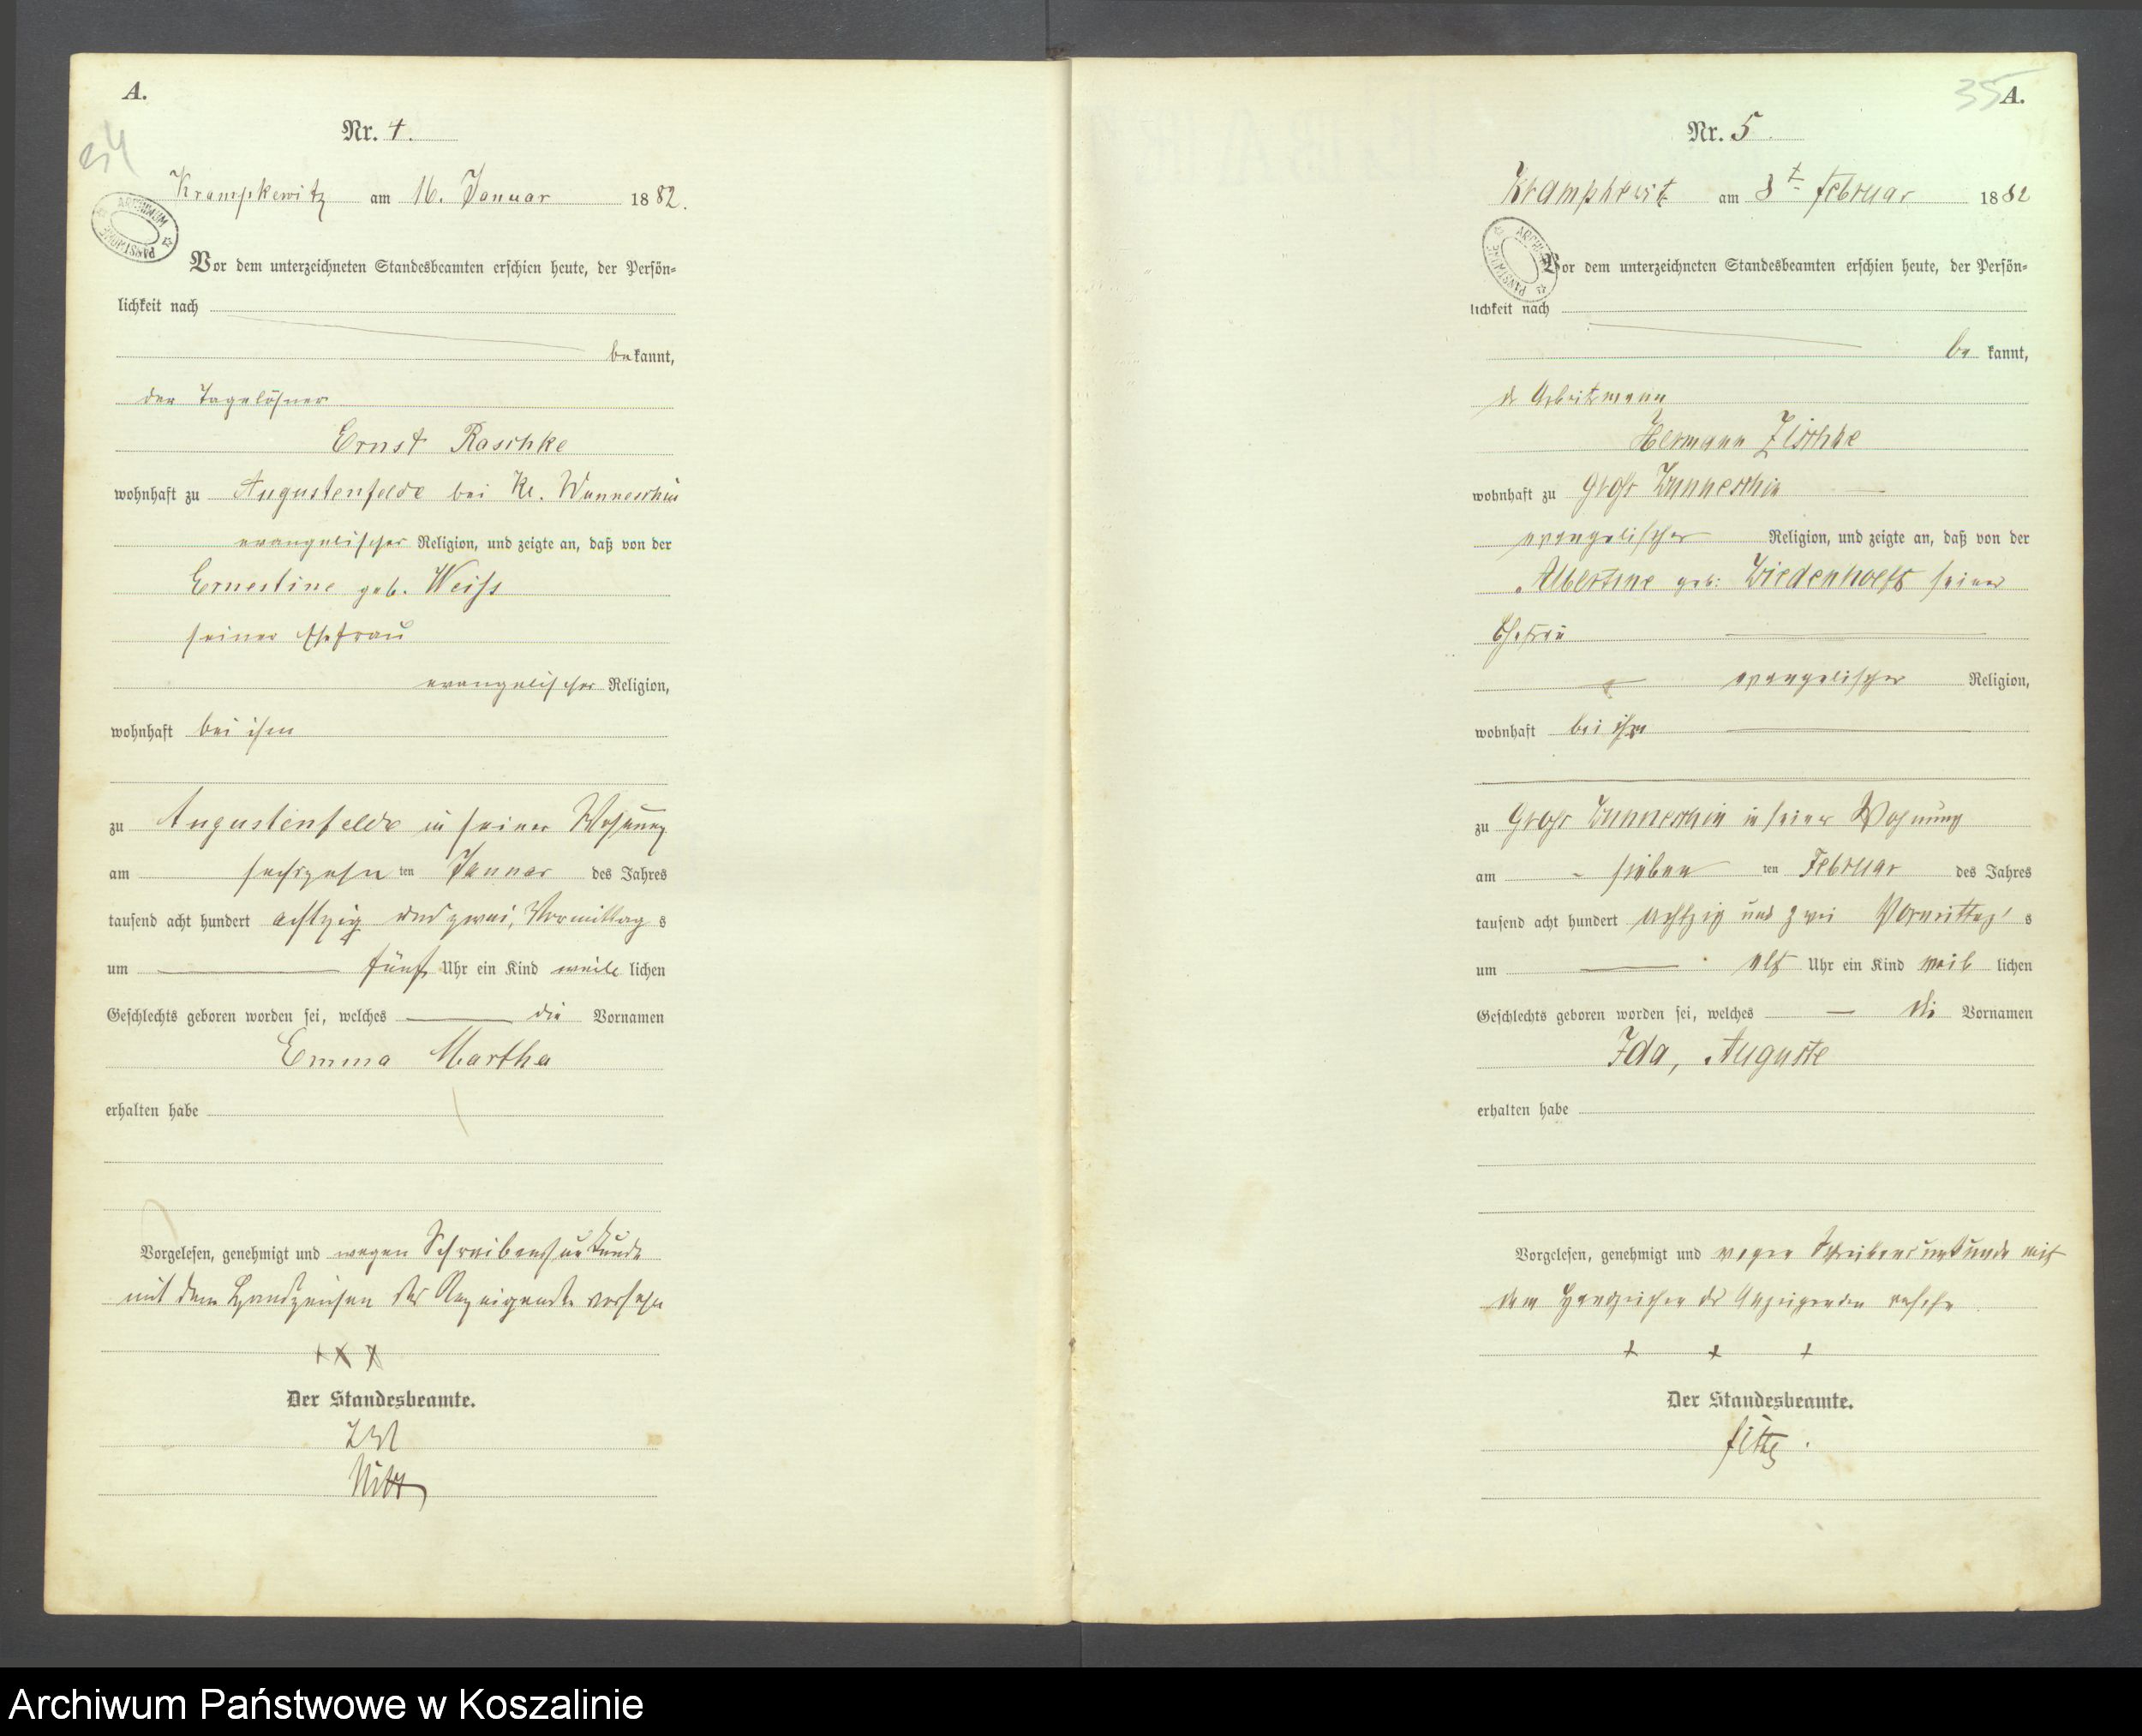 A.
54
Nr. 4.
Krampkewitz am 16. Januar 1882.
ARCHIWUM PAŃSTWOWE
Vor dem unterzeichneten Standesbeamten erschien heute, der Persön-
lichkeit nach
bekannt,
der Tagelöhner
Ernst Raschke
wohnhaft zu Augustenfelde bei Kl. Wunneschin
evangelischer Religion, und zeigte an, daß von der
Ernestine geb. Weiss
seiner Ehefrau
evangelischer Religion,
wohnhaft bei ihm
zu Augustenfelde in seiner Wohnung
am sechszehn ten Januar des Jahres
tausend acht hundert achtzig und zwei, Vormittag s
um fünf Uhr ein Kind weib lichen
Geschlechts geboren worden sei, welches die Vornamen
Emma Martha
erhalten habe
Vorgelesen, genehmigt und wegen Schreibensunkunde
mit dem Handzeichen des Anzeigenden versehen
+ + +
Der Standesbeamte.
35 A.
Nr. 5.
Krampkewitz am 8t Februar 1882
ARCHIWUM PAŃSTWOWE
Vor dem unterzeichneten Standesbeamten erschien heute, der Persön-
lichkeit nach
be kannt,
der Arbeitsmann
Hermann Zischke
wohnhaft zu Groß Wunneschin
evangelischer Religion, und zeigte an, daß von der
Albertine geb: Wiedenhoeft seiner
Ehefrau
evangelischer Religion,
wohnhaft bei ihm
zu Groß Wunneschin in seiner Wohnung
am sieben ten Februar des Jahres
tausend acht hundert achtzig und zwei Vormittag s
um elf Uhr ein Kind weib lichen
Geschlechts geboren worden sei, welches die Vornamen
Ida, Auguste
erhalten habe
Vorgelesen, genehmigt und wegen Schreibensunkunde mit
dem Handzeichen des Anzeigenden versehen
+ + +
Der Standesbeamte.
Archiwum Państwowe w Koszalinie